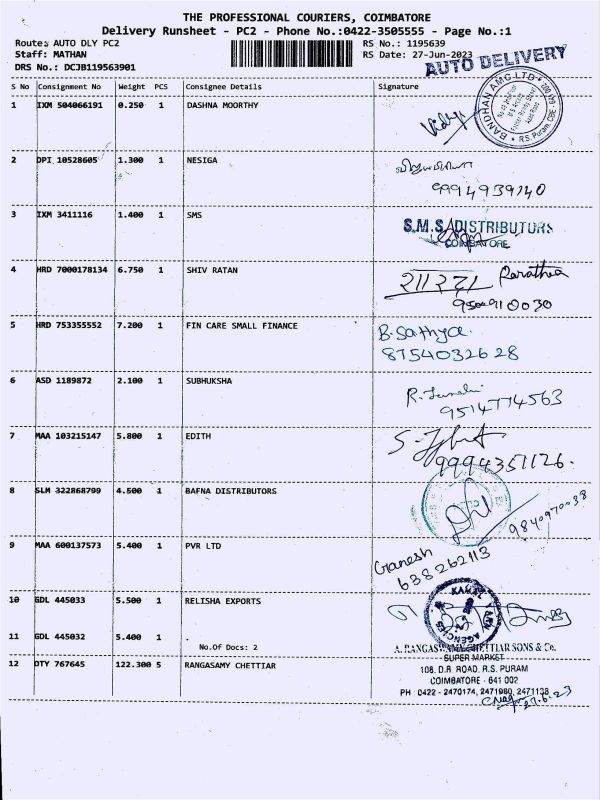 THE PROFESSIONAL COURIERS, COIMBATORE
Delivery Runsheet - PC2 - Phone No.:0422-3505555 - Page No.:1
Route: AUTO DLY PC2
RS No.: 1195639
Staff: MATHAN
RS Date: 27-Jun-2023
DRS No.: DCJB119563901
AUTO DELIVERY
S No Consignment No Weight PCS Consignee Details Signature
1 IXM 504066191 0.250 1 DASHNA MOORTHY
BANDHAN AMC-LTD
R.S. Puram, CBE
2 DPI 10528605 1.300 1 NESIGA
9994939140
3 IXM 3411116 1.400 1 SMS
S.M.S. DISTRIBUTORS
COIMBATORE
4 HRD 7000178134 6.750 1 SHIV RATAN
5 HRD 753355552 7.200 1 FIN CARE SMALL FINANCE
B. Sathya
8754032628
6 ASD 1189872 2.100 1 SUBHUKSHA
9514774563
7 MAA 103215147 5.800 1 EDITH
9994351126.
8 SLM 322868799 4.500 1 BAFNA DISTRIBUTORS
9840970038
9 MAA 600137573 5.400 1 PVR LTD
Ganesh
638262113
10 GDL 445033 5.500 1 RELISHA EXPORTS
11 GDL 445032 5.400 1 .
No.Of Docs: 2
AGENCIES
12 DTY 767645 122.300 5 RANGASAMY CHETTIAR
A. RANGASWAMY CHETTIAR SONS & Co.
SUPER MARKET
108, D.R. ROAD, R.S. PURAM
COIMBATORE - 641 002
PH : 0422 - 2470174, 2471980, 2471138
27.6.23